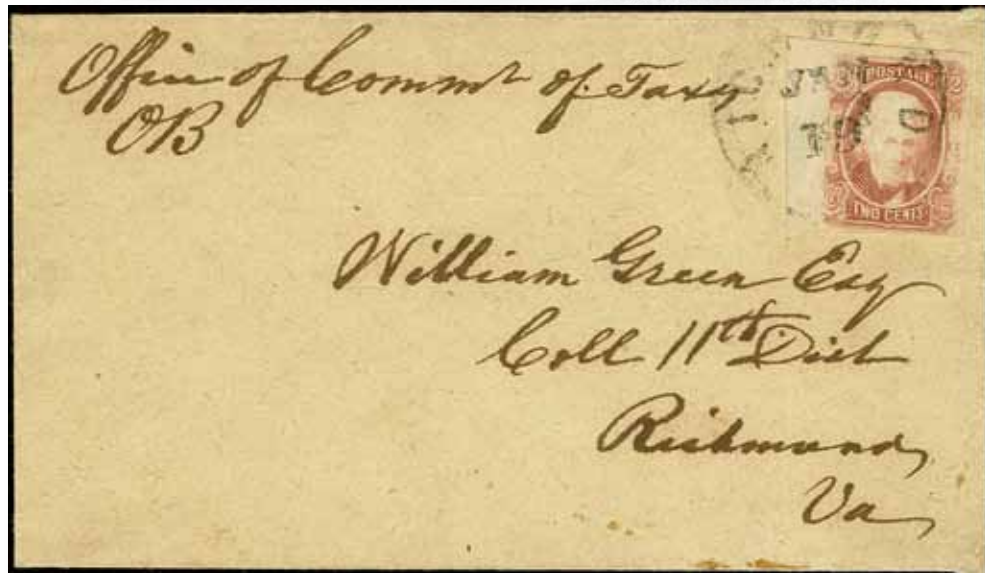 Office of Commr of Taxes
OB
POSTAGE
2
TWO CENTS
William Green Esq
Coll 11th Dist
Richmond
Va